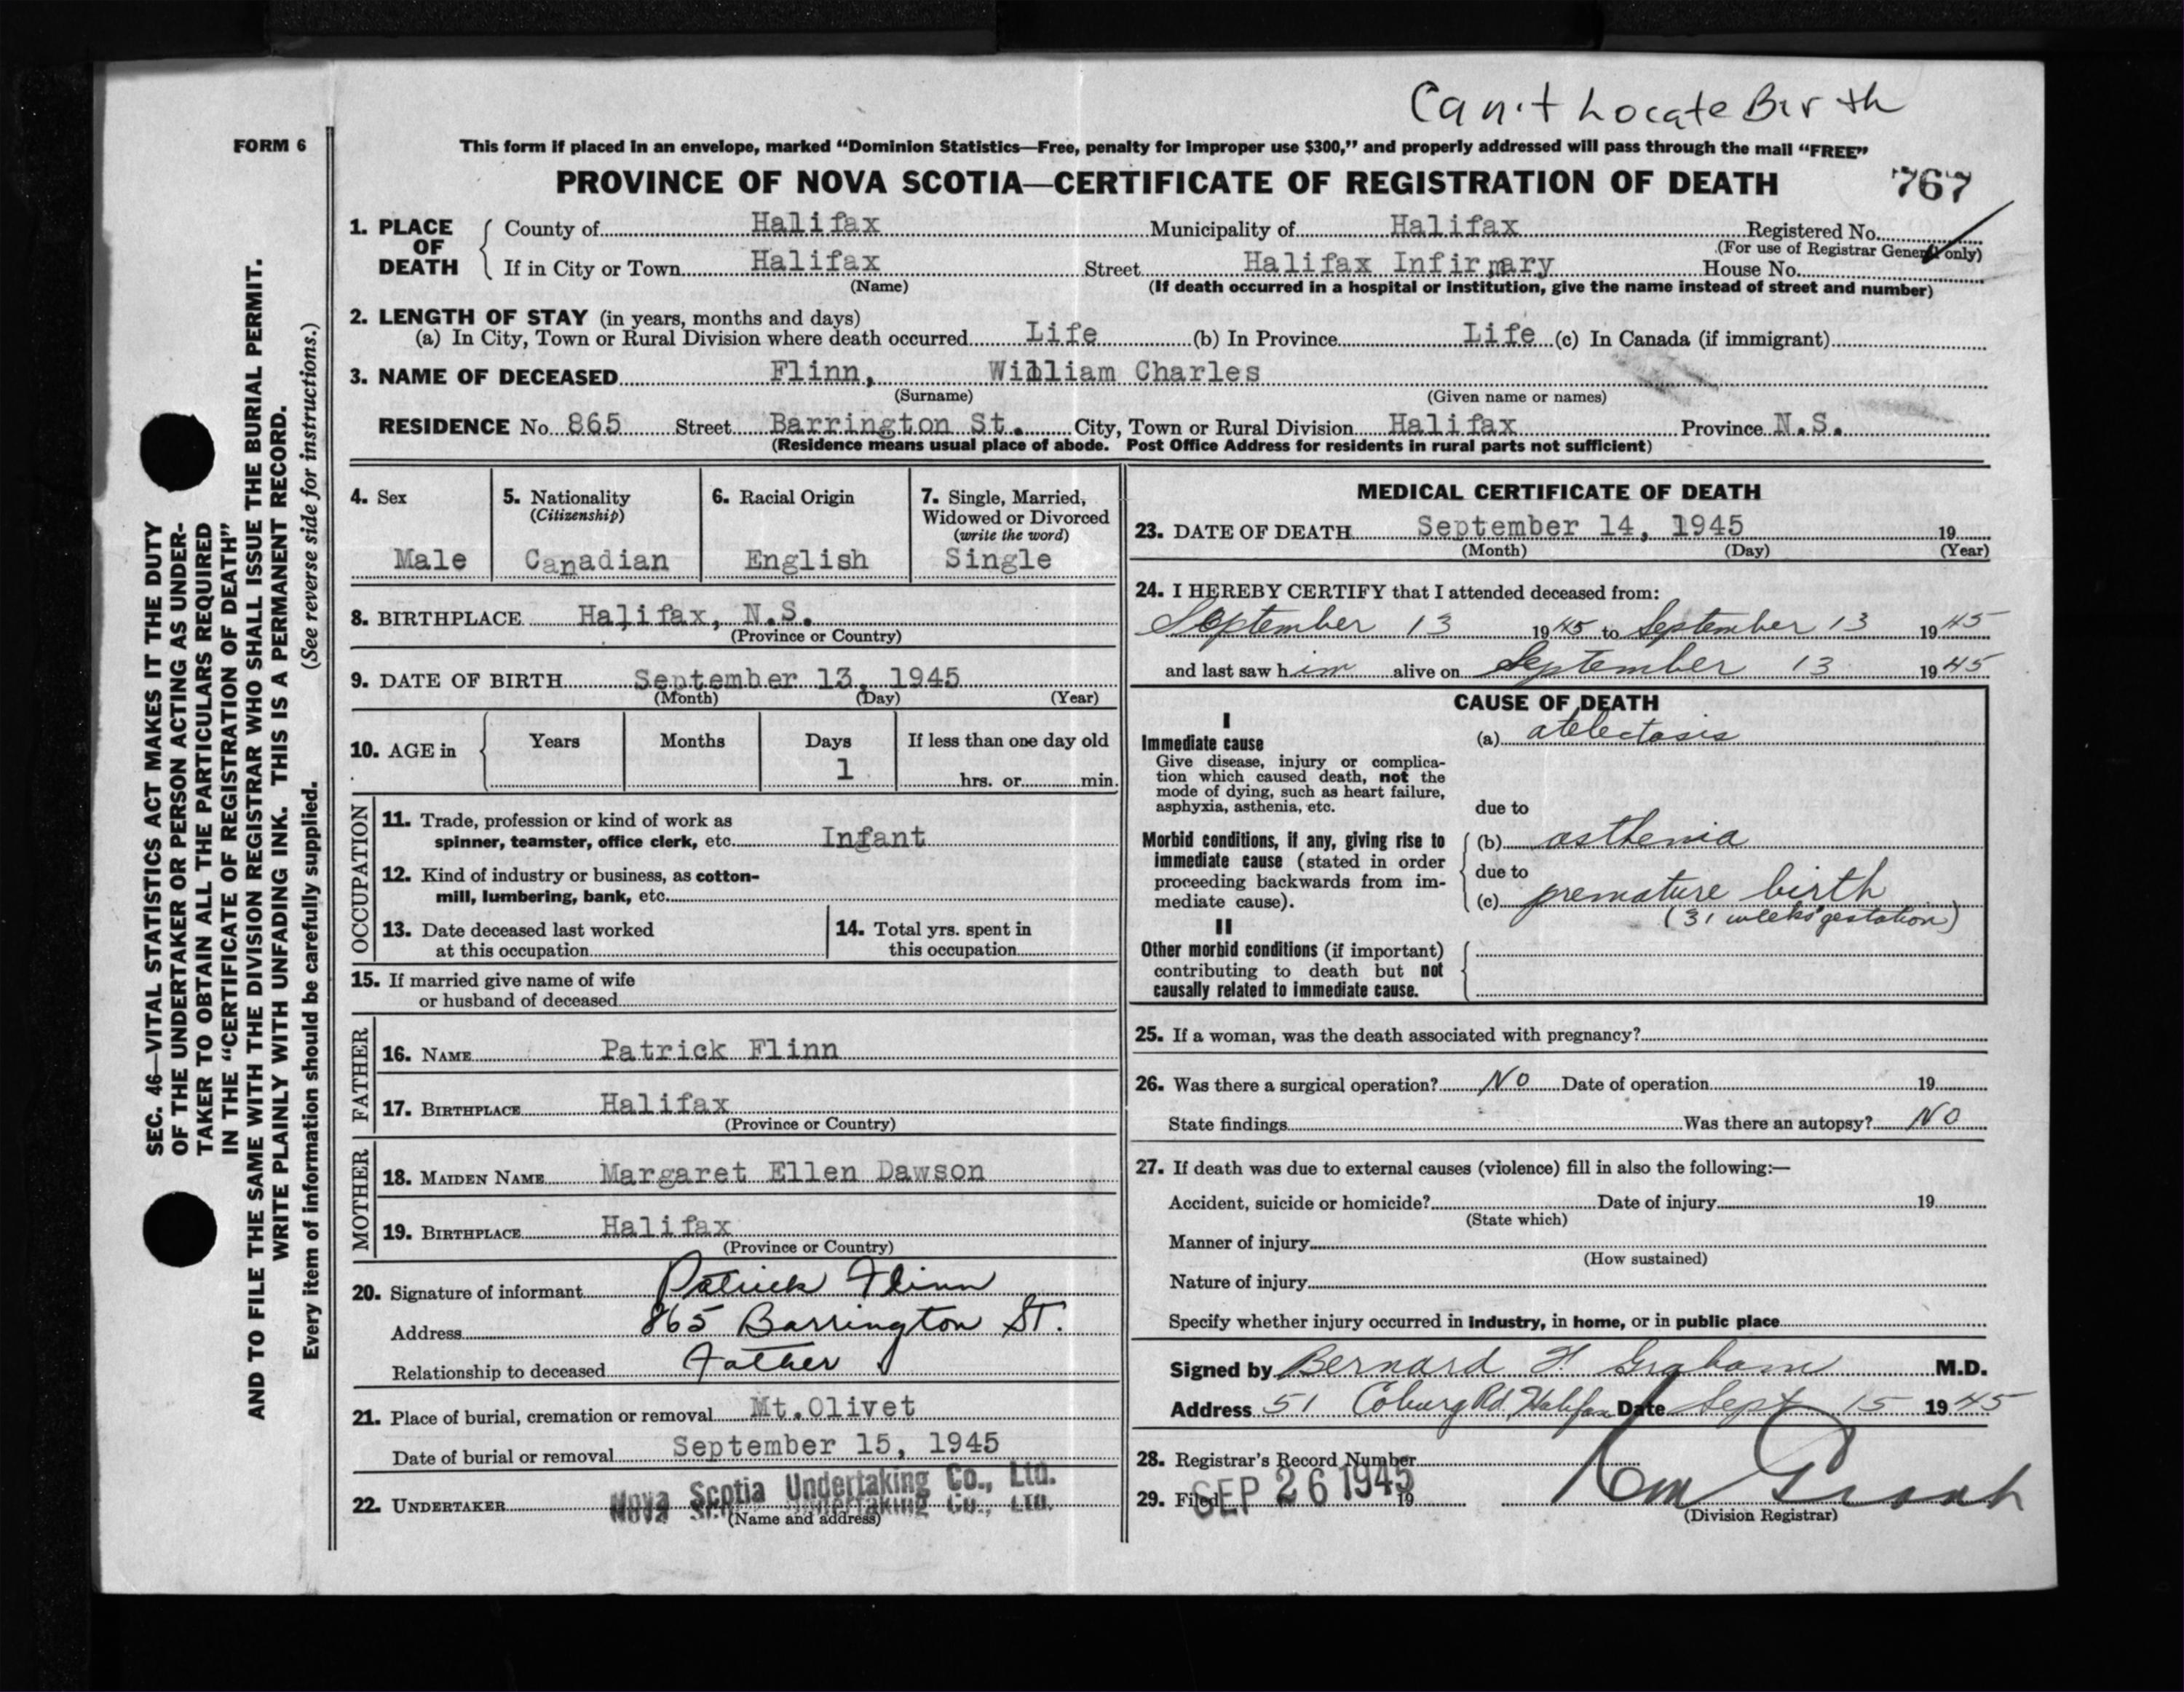 Can't Locate Birth
FORM 6
This form if placed in an envelope, marked “Dominion Statistics—Free, penalty for improper use $300,” and properly addressed will pass through the mail “FREE”
PROVINCE OF NOVA SCOTIA—CERTIFICATE OF REGISTRATION OF DEATH
767
1. PLACE OF DEATH
County of Halifax Municipality of Halifax Registered No.
(For use of Registrar General only)
If in City or Town Halifax Street Halifax Infirmary House No.
(Name) (If death occurred in a hospital or institution, give the name instead of street and number)
2. LENGTH OF STAY (in years, months and days)
(a) In City, Town or Rural Division where death occurred Life (b) In Province Life (c) In Canada (if immigrant)
3. NAME OF DECEASED Flinn, William Charles
(Surname) (Given name or names)
RESIDENCE No. 865 Street Barrington St. City, Town or Rural Division Halifax Province N.S.
(Residence means usual place of abode. Post Office Address for residents in rural parts not sufficient)
4. Sex
Male
5. Nationality
(Citizenship)
Canadian
6. Racial Origin
English
7. Single, Married,
Widowed or Divorced
(write the word)
Single
8. BIRTHPLACE Halifax, N.S.
(Province or Country)
9. DATE OF BIRTH September 13, 1945
(Month) (Day) (Year)
10. AGE in
Years Months Days If less than one day old
1 hrs. or min.
OCCUPATION
11. Trade, profession or kind of work as
spinner, teamster, office clerk, etc. Infant
12. Kind of industry or business, as cotton-
mill, lumbering, bank, etc.
13. Date deceased last worked
at this occupation
14. Total yrs. spent in
this occupation
15. If married give name of wife
or husband of deceased
FATHER
16. NAME Patrick Flinn
17. BIRTHPLACE Halifax
(Province or Country)
MOTHER
18. MAIDEN NAME Margaret Ellen Dawson
19. BIRTHPLACE Halifax
(Province or Country)
20. Signature of informant Patrick Flinn
Address 865 Barrington St.
Relationship to deceased Father
21. Place of burial, cremation or removal Mt.Olivet
Date of burial or removal September 15, 1945
22. UNDERTAKER Nova Scotia Undertaking Co., Ltd.
Nova Scotia Undertaking Co., Ltd.
(Name and address)
MEDICAL CERTIFICATE OF DEATH
23. DATE OF DEATH September 14, 1945 19
(Month) (Day) (Year)
24. I HEREBY CERTIFY that I attended deceased from:
September 13 1945 to September 13 1945
and last saw him alive on September 13 1945
CAUSE OF DEATH
I
Immediate cause
Give disease, injury or complica-
tion which caused death, not the
mode of dying, such as heart failure,
asphyxia, asthenia, etc.
(a) atelectasis
due to
Morbid conditions, if any, giving rise to
immediate cause (stated in order
proceeding backwards from im-
mediate cause).
(b) asthenia
due to
(c) premature birth
(31 weeks gestation)
II
Other morbid conditions (if important)
contributing to death but not
causally related to immediate cause.
25. If a woman, was the death associated with pregnancy?
26. Was there a surgical operation? No Date of operation 19
State findings Was there an autopsy? No
27. If death was due to external causes (violence) fill in also the following:—
Accident, suicide or homicide? Date of injury 19
(State which)
Manner of injury
(How sustained)
Nature of injury
Specify whether injury occurred in industry, in home, or in public place
Signed by Bernard F. Graham M.D.
Address 51 Coburg Rd. Halifax Date Sept 15 1945
28. Registrar's Record Number
29. Filed SEP 26 1945 19
(Division Registrar)
SEC. 46—VITAL STATISTICS ACT MAKES IT THE DUTY
OF THE UNDERTAKER OR PERSON ACTING AS UNDER-
TAKER TO OBTAIN ALL THE PARTICULARS REQUIRED
IN THE “CERTIFICATE OF REGISTRATION OF DEATH”
AND TO FILE THE SAME WITH THE DIVISION REGISTRAR WHO SHALL ISSUE THE BURIAL PERMIT.
WRITE PLAINLY WITH UNFADING INK. THIS IS A PERMANENT RECORD.
Every item of information should be carefully supplied. (See reverse side for instructions.)